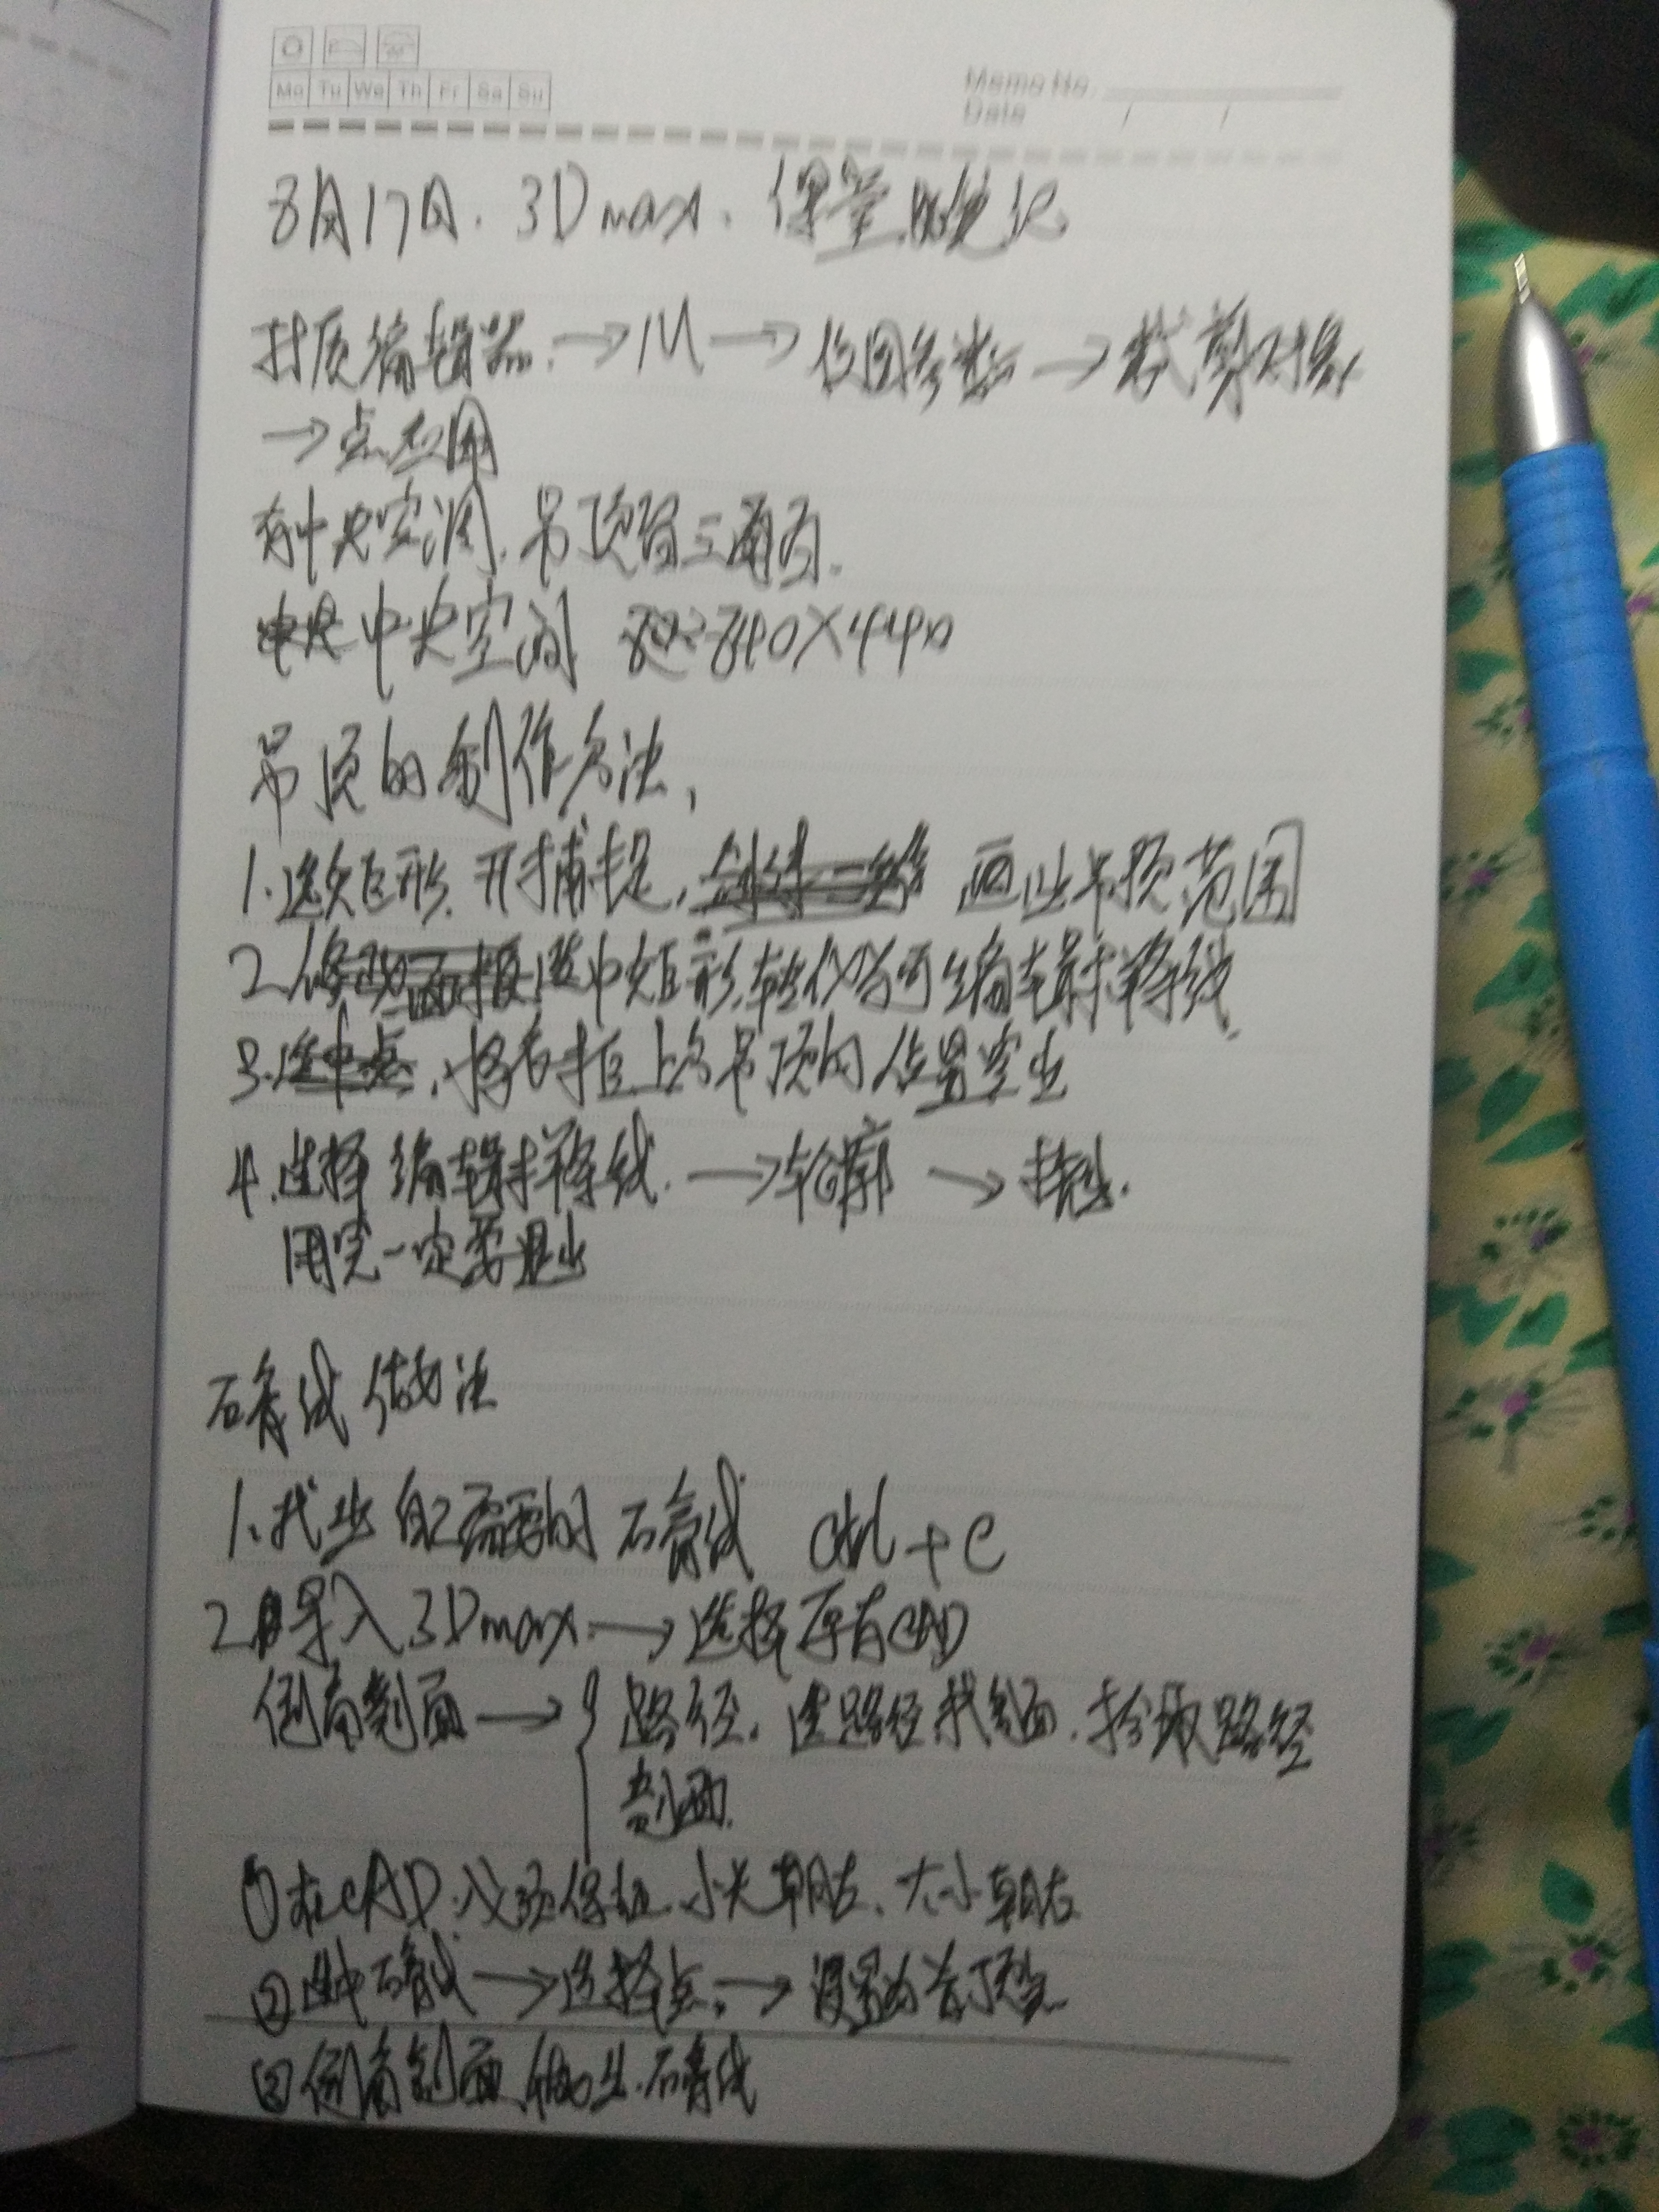 Mo Tu We Th Fr Sa Su
Memo No.
Date / /
8月17日. 3Dmax. 课堂随笔记
材质编辑器. → M → 位图参数 → 裁剪对象
→ 点应用
有中央空调. 吊顶留三面.
中央空调 840×440
吊顶的制作方法,
1.选矩形. 开捕捉, 画出吊顶范围
2. 选中矩形. 转化为可编辑样条线.
3. 将 上 吊顶的位置空出
4.选择编辑样条线. → 轮廓 → 挤出.
用完一定要退出
石膏线做法
1.找出自己需要的石膏线 ctrl+C
2.导入3Dmax. → 选择原有CAD
倒角剖面 → { 路径. 选路径找剖面. 拾取路径
剖面.
①在CAD.必须保证.小头朝左、大 朝右
②选中石膏线 → 选择点. → 设置为首顶点
③倒角剖面.做出.石膏线